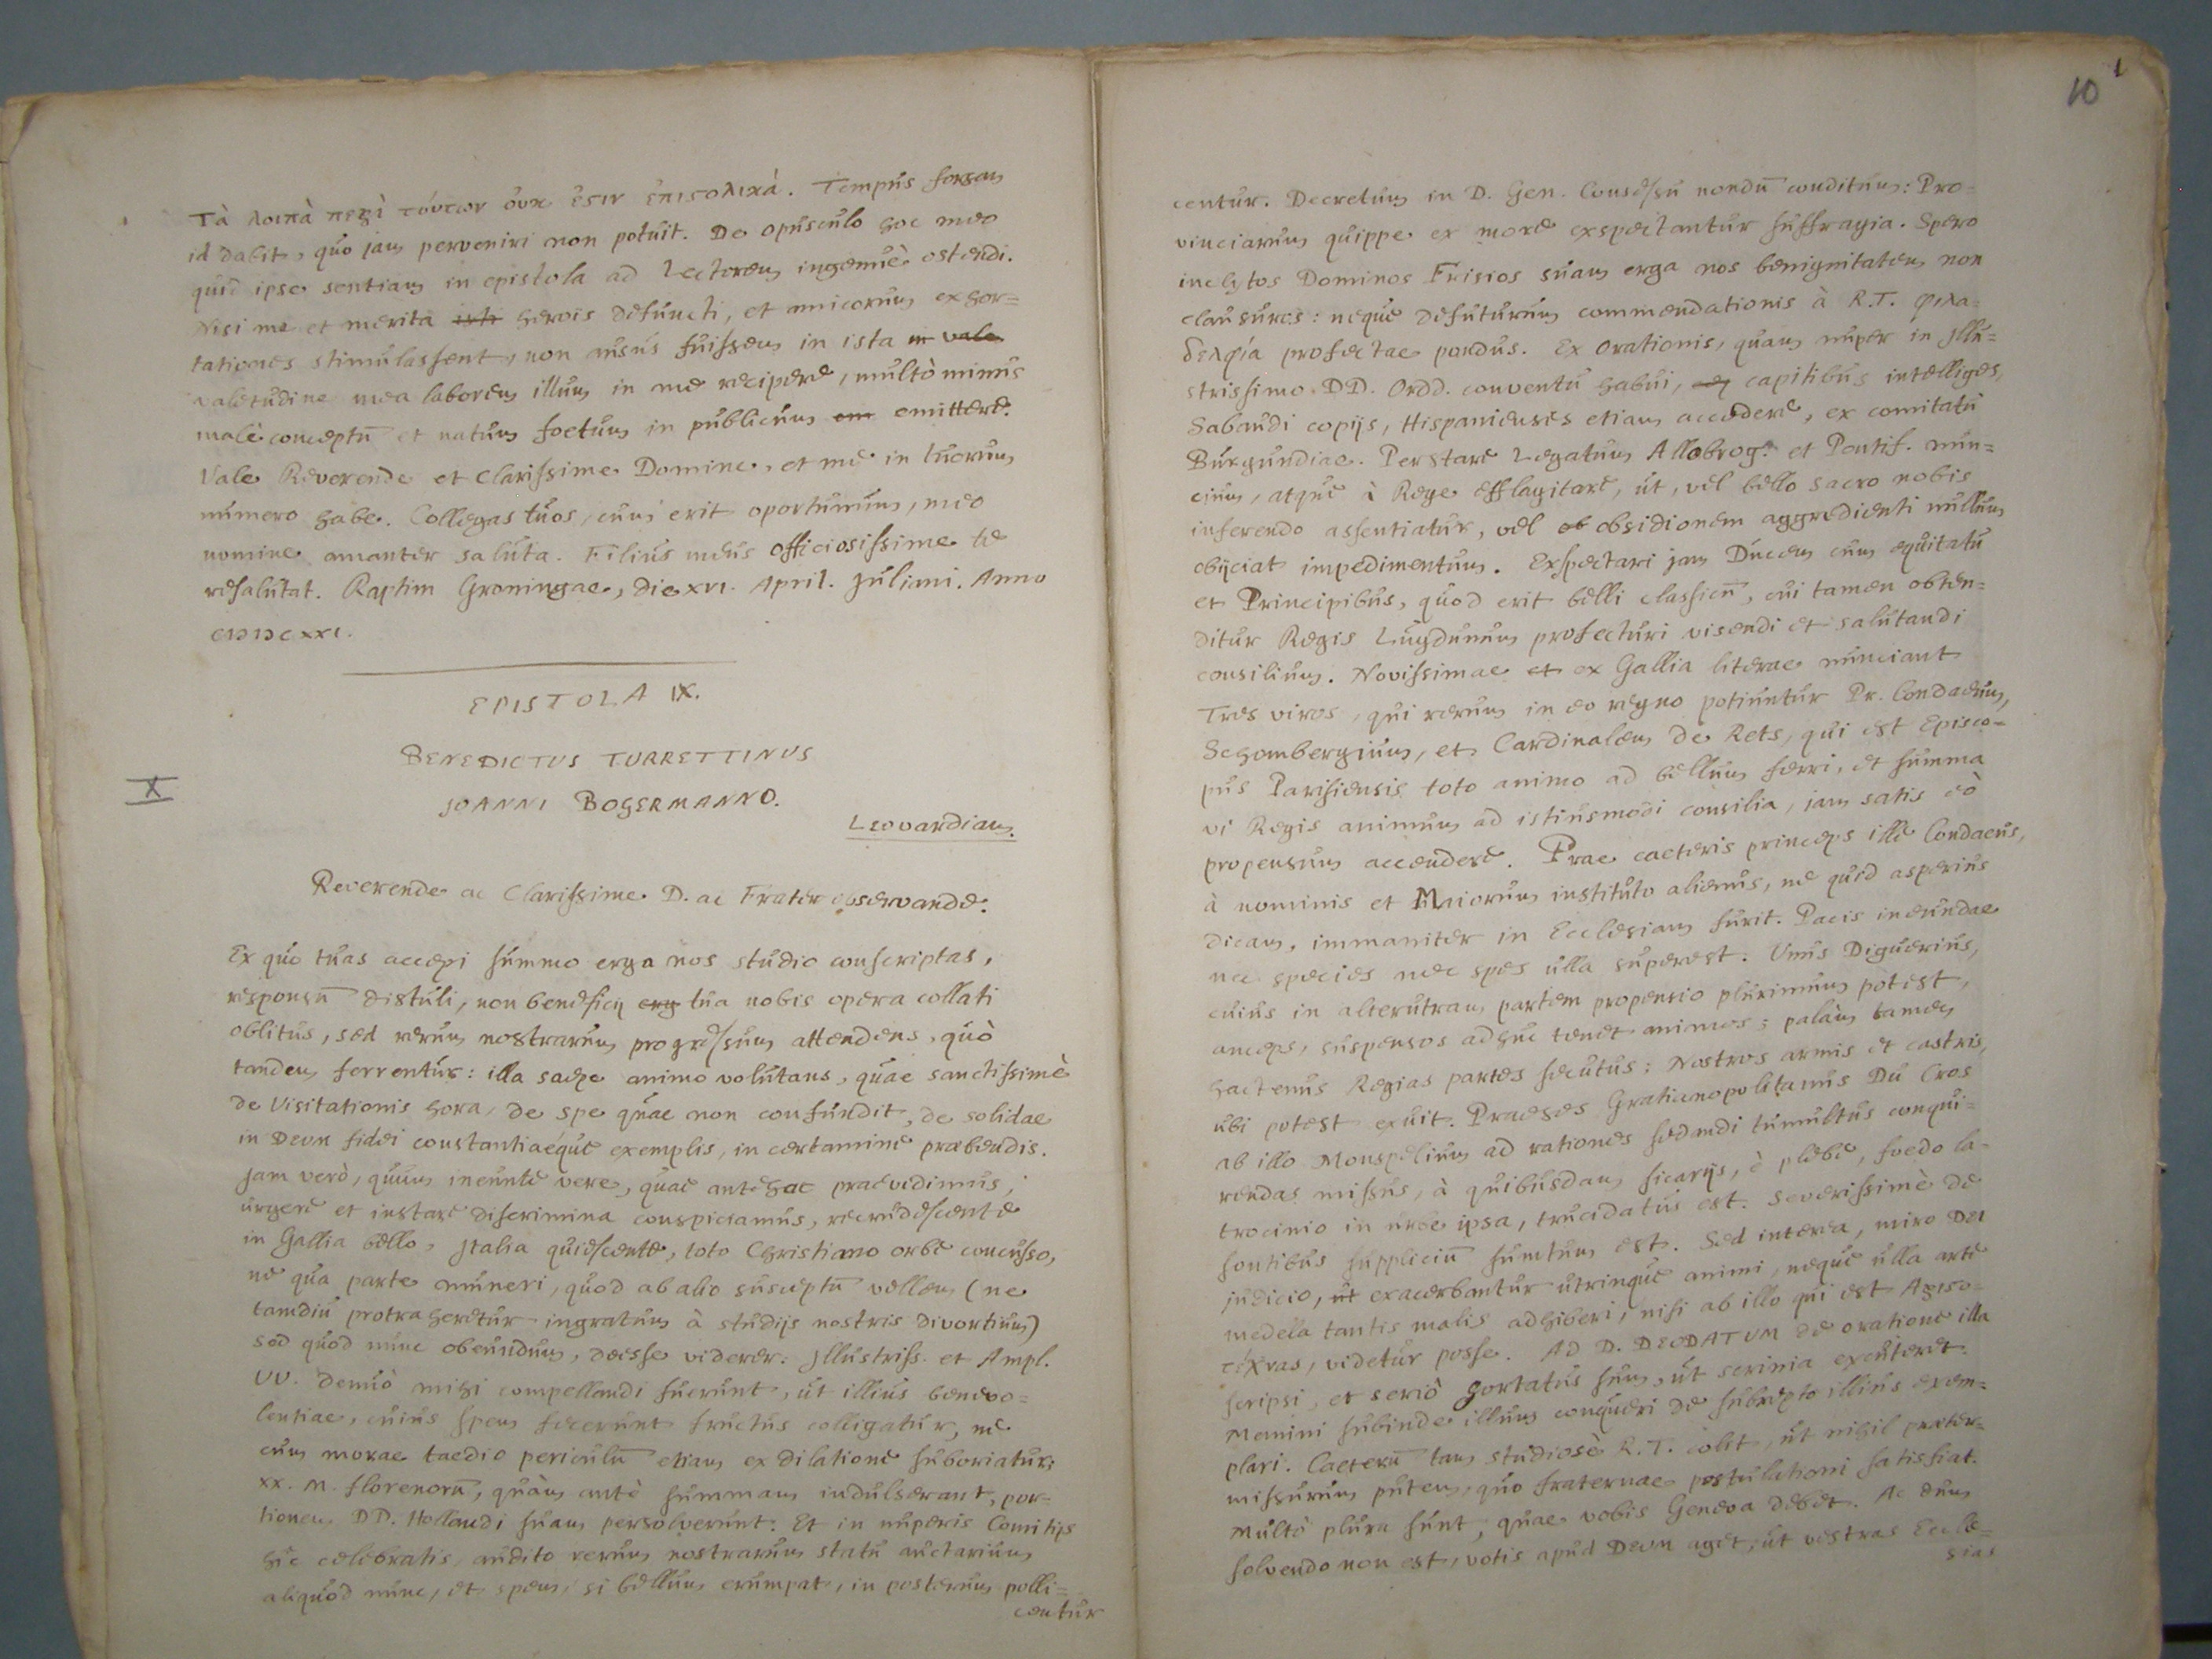 Τὰ λοιπὰ περὶ τούτων οὐκ ἔστιν ἐπιστολικά. Tempus forsan
id dabit, quo jam perveniri non potuit. De opusculo hoc meo
quid ipse sentiam in epistola ad Lectorem ingenuè ostendi.
Nisi me et merita isti herois defuncti, et amicorum exhor=
tationes stimulassent, non ausus fuissem in ista in vale
valetudine mea laborem illum in me recipere, multò minus
malè conceptū et natum foetum in publicum em emittere.
Vale Reverende et Clarissime Domine, et me in tuorum
numero habe. Collegas tuos, cum erit oportunum, meo
nomine amanter saluta. Filius meus officiosissime te
resalutat. Raptim Groningae, die XVI. April. Juliani. Anno
CIƆIƆCXXI.
EPISTOLA IX.
BENEDICTUS TURRETTINUS
JOANNI BOGERMANNO.
X
Leovardiam.
Reverende ac Clarissime D. ac Frater observande.
Ex quo tuas accepi summo erga nos studio conscriptas,
responsū distuli, non beneficij erg tua nobis opera collati
oblitus, sed rerum nostrarum progressum attendens, quò
tandem ferrentur: illa saepe animo volutans, quae sanctissimè
de Visitationis hora, de spe quae non confundit, de solidae
in DEUM fidei constantiaeque exemplis, in certamine praebendis.
Jam verò, quum ineunte vere, quae antehac praevidimus,
urgere et instare discrimina conspiciamus, recrudescente
in Gallia bello, Italia quiescente, toto Christiano orbe concusso,
ne qua parte muneri, quod ab alio susceptū vellem (ne
tamdiu protraheretur ingratum à studijs nostris divortium)
sed quod nunc obeundum, deesse viderer: Illustriss. et Ampl.
VV. demuò mihi compellandi fuerunt, ut illius benevo=
lentiae, cuius spem fecerunt fructus colligatur, ne
cum morae taedio periculū etiam ex dilatione suboriatur:
XX. M. florenorū, quàm antè summam indulserant, por=
tionem DD. Hollandi suam persolverunt. Et in nuperis Comitijs
hîc celebratis, audito rerum nostrarum statu auctarium
aliquod nunc, et spem, si bellum erumpat, in posterum polli=
centur
10 1
centur. Decretum in D. Gen. Consessu nondū conditum: Pro=
vinciarum quippe ex more exspectantur suffragia. Spero
inclytos Dominos Frisios suam erga nos benignitatem non
clausuros: neque defuturum commendationis à R.T. φιλα=
δελφία profectae pondus. Ex Orationis, quam nuper in Illu=
strissimo DD. Ordd. conventu habui, capitibus intelliges,
Sabaudi copijs, Hispanienses etiam accedere, ex comitatu
Burgundiae. Perstare Legatum Allobrog. et Pontif. nun=
cium, atque à Rege efflagitare, ut, vel bello sacro nobis
inferendo assentiatur, vel ob obsidionem aggredienti nullum
obijciat impedimentum. Exspectari jam Ducem cum equitatu
et Principibus, quod erit belli classicū, cui tamen obten=
ditur Regis Lugdunum profecturi visendi et salutandi
consilium. Novissimae et ex Gallia literae nunciant
Tres viros, qui rerum in eo regno potiuntur Pr. Condaeum,
Schombergium, et Cardinalem de Rets, qui est Episco=
pus Parisiensis toto animo ad bellum ferri, et summa
vi Regis animum ad istiusmodi consilia, jam satis eò
propensum accendere. Prae caeteris princeps ille Condaeus,
à nominis et Maiorum instituto alienus, ne quid asperius
dicam, immaniter in Ecclesiam furit. Pacis ineundae
nec species nec spes ulla superest. Unus Diguerius,
cuius in alterutram partem propensio plurimum potest,
anceps, suspensos adhuc tenet animos; palàm tamen
hactenus Regias partes secutus; Nostros armis et castris,
ubi potest exuit. Praeses Gratianopolitanus Du Cros
ab illo Monspelium ad rationes sedandi tumultus conqui=
rendas missus, à quibusdam sicarijs, è plebe, foedo la=
trocinio in urbe ipsa, trucidatus est. Severissimè de
sontibus suppliciū sumtum est. Sed interea, miro DEI
judicio, ut exacerbantur utrinque animi, neque ulla arte
medella tantis malis adhiberi, nisi ab illo qui est Ἀριστο=
τέχνας, videtur posse. Ad D. DEODATUM de oratione illa
scripsi, et seriò hortatus sum, ut scrinia excuteret.
Memini subinde illum conqueri de subrepto illius exem=
plari. Caeterū tam studiosè R.T. colit, ut nihil praeter=
missurum putem, quo fraternae postulationi satisfiat.
Multò plura sunt, quae vobis Geneva debet. Ac dum
solvendo non est, votis apud DEUM aget, ut vestras Eccle=
sias